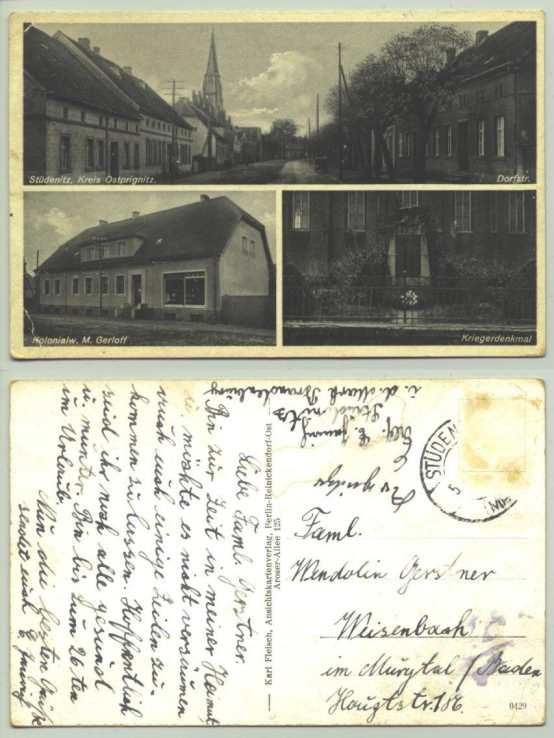 Stüdenitz, Kreis Ostprignitz.
Dorfstr.
Kolonialw. M. Gerloff
Kriegerdenkmal
Liebe Faml. Gerstner.
Bin zur Zeit in meiner Heimat
möchte es nicht versäumen
euch auch einige Zeilen zu-
kommen zu lassen. Hoffentlich
seid ihr noch alle gesund
u. munter. Bin bis zum 26ten
im Urlaub.
Nun die besten Grüße
sendet euch E.
Karl Fleisch, Ansichtskartenverlag, Berlin-Reinickendorf-Ost
Aroser-Allee 125
Stüdenitz
i. d. Mark Brandenburg
STÜDEN
Faml.
Wendolin Gerstner
Weisenbach
im Murgtal / Baden
Hauptstr. 186
0429